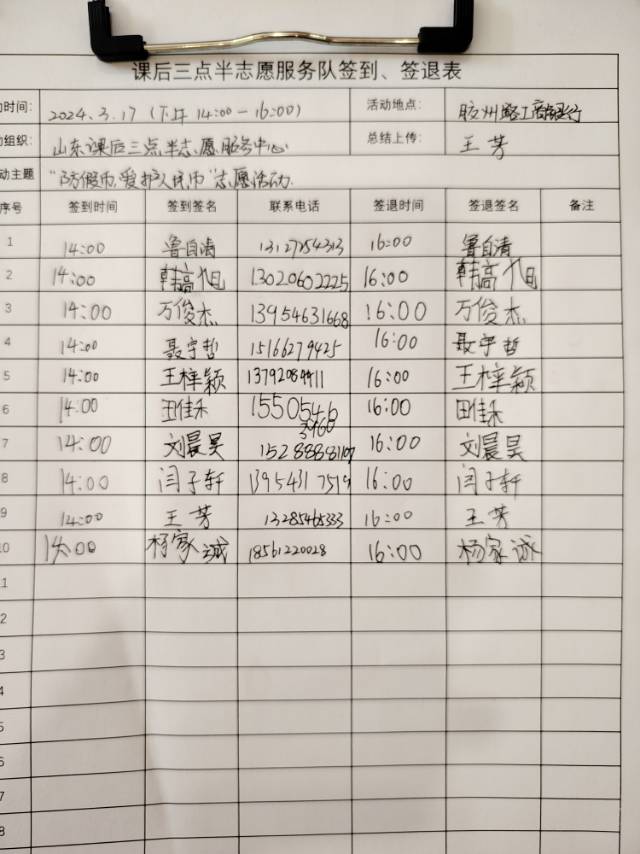 课后三点半志愿服务队签到、签退表
动时间: 2024.3.17 (下午 14:00-16:00) 活动地点: 胶州路工商银行
动组织: 山东课后三点半志愿服务中心 总结上传: 王芳
动主题 "防假币,爱护人民币"志愿活动
序号 签到时间 签到签名 联系电话 签退时间 签退签名 备注
1 14:00 鲁自清 16:00 鲁自清
2 14:00 韩高旭 13020602225 16:00 韩高旭
3 14:00 万俊杰 13954631668 16:00 万俊杰
4 14:00 聂宇哲 15166279425 16:00 聂宇哲
5 14:00 王梓颖 16:00 王梓颖
6 14:00 田佳禾 1550546 16:00 田佳禾
3160
7 14:00 刘晨昊 16:00 刘晨昊
8 14:00 闫子轩 16:00 闫子轩
9 14:00 王芳 13285465333 16:00 王芳
10 14:00 杨家诚 18561220028 16:00 杨家诚
11
2
3
4
5
6
7
8